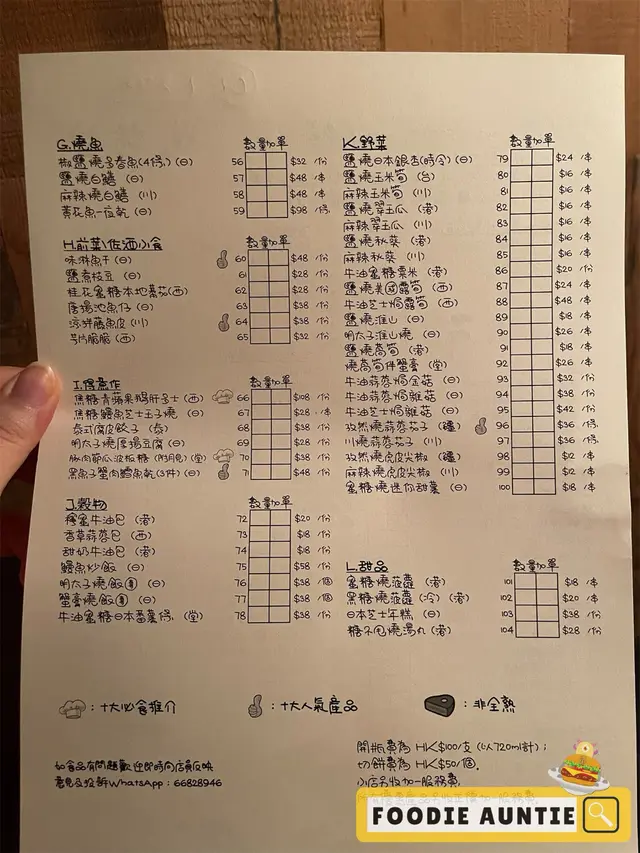 G.燒魚 數量加單
椒鹽燒多春魚(4條)(日) 56 $32 /份
鹽燒白鱔 (日) 57 $48 /本
麻辣燒白鱔 (川) 58 $48 /本
黃花魚一夜乾 (日) 59 $98 /條
H.前菜\佐酒小食 數量加單
味淋魚干 (日) 60 $48 /份
鹽煮枝豆 (日) 61 $28 /份
桂花蜜糖本地番茄(西) 62 $28 /份
唐揚池魚仔 (日) 63 $38 /份
涼拌脆魚皮 (川) 64 $38 /份
芋片脆脆 (西) 65 $32 /份
I.傷意作 數量加單
焦糖青蘋果鵝肝多士 (西) 66 $108 /份
焦糖鰻魚芝士玉子燒 (日) 67 $28 /本
泰式腐皮餃子 (泰) 68 $38 /份
明太子燒厚揚豆腐 (日) 69 $28 /份
豚肉節瓜波板糖 (附月見)(堂) 70 $38 /份
黑魚子蟹肉鱈魚乾(3件) (日) 71 $48 /份
J.穀物 數量加單
檸蜜牛油包 (港) 72 $20 /份
香草蒜蓉包 (西) 73 $18 /份
甜奶牛油包 (港) 74 $18 /份
鰻魚炒飯 (日) 75 $58 /份
明太子燒飯 (日) 76 $38 /個
蟹膏燒飯 (日) 77 $38 /個
牛油蜜糖日本番薯條. (堂) 78 $38 /份
K.野菜 數量加單
鹽燒日本銀杏(時令) (日) 79 $24 /本
鹽燒玉米筍 (台) 80 $16 /本
麻辣玉米筍 (川) 81 $16 /本
鹽燒翠玉瓜 (港) 82 $16 /本
麻辣翠玉瓜 (川) 83 $16 /本
鹽燒秋葵 (港) 84 $16 /本
麻辣秋葵 (川) 85 $16 /本
牛油蜜糖粟米 (港) 86 $20 /份
鹽燒美國露筍 (西) 87 $24 /本
牛油芝士焗露筍 (西) 88 $48 /本
鹽燒淮山 (日) 89 $18 /本
明太子淮山燒 (日) 90 $26 /本
鹽燒萵筍 (港) 91 $18 /本
燒萵筍伴蟹膏 (堂) 92 $26 /本
牛油蒜蓉焗金菇 (日) 93 $32 /份
牛油蒜蓉焗雜菇 (日) 94 $38 /份
牛油芝士焗雜菇 (日) 95 $42 /份
孜然燒蒜蓉茄子 (疆) 96 $36 /條
川燒蒜蓉茄子 (川) 97 $36 /條
孜然燒虎皮尖椒 (疆) 98 $12 /本
麻辣燒虎皮尖椒 (川) 99 $12 /本
蜜糖燒迷你甜薯 (日) 100 $18 /本
L.甜品 數量加單
蜜糖燒菠蘿 (港) 101 $18 /本
黑糖燒菠蘿 (冷) (港) 102 $20 /本
日本芝士年糕 (日) 103 $38 /份
糖不甩燒湯丸 (港) 104 $28 /份
:十大必食推介 :十大人氣產品 :非全熟
如食品有問題歡迎即時向店員反映
意見及投訴WhatsApp:66828946
開瓶費為 HK$100/支 (以720ml計);
切餅費為 HK$50/個.
小店另收加一服務費.
FOODIE AUNTIE